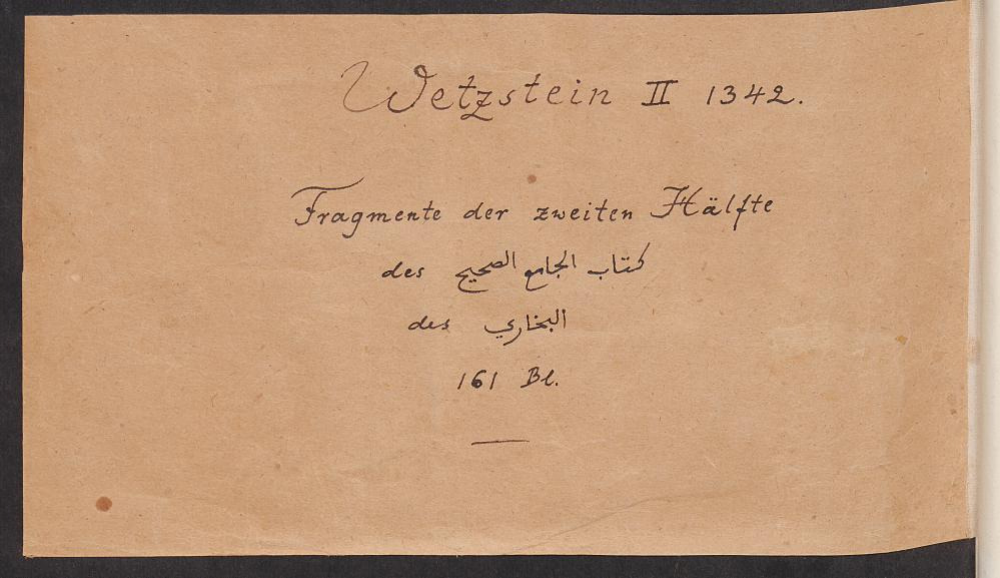 Wetzstein II 1342.
Fragmente der zweiten Hälfte
des كتاب الجامع الصحيح
des البخاري
161 Bl.